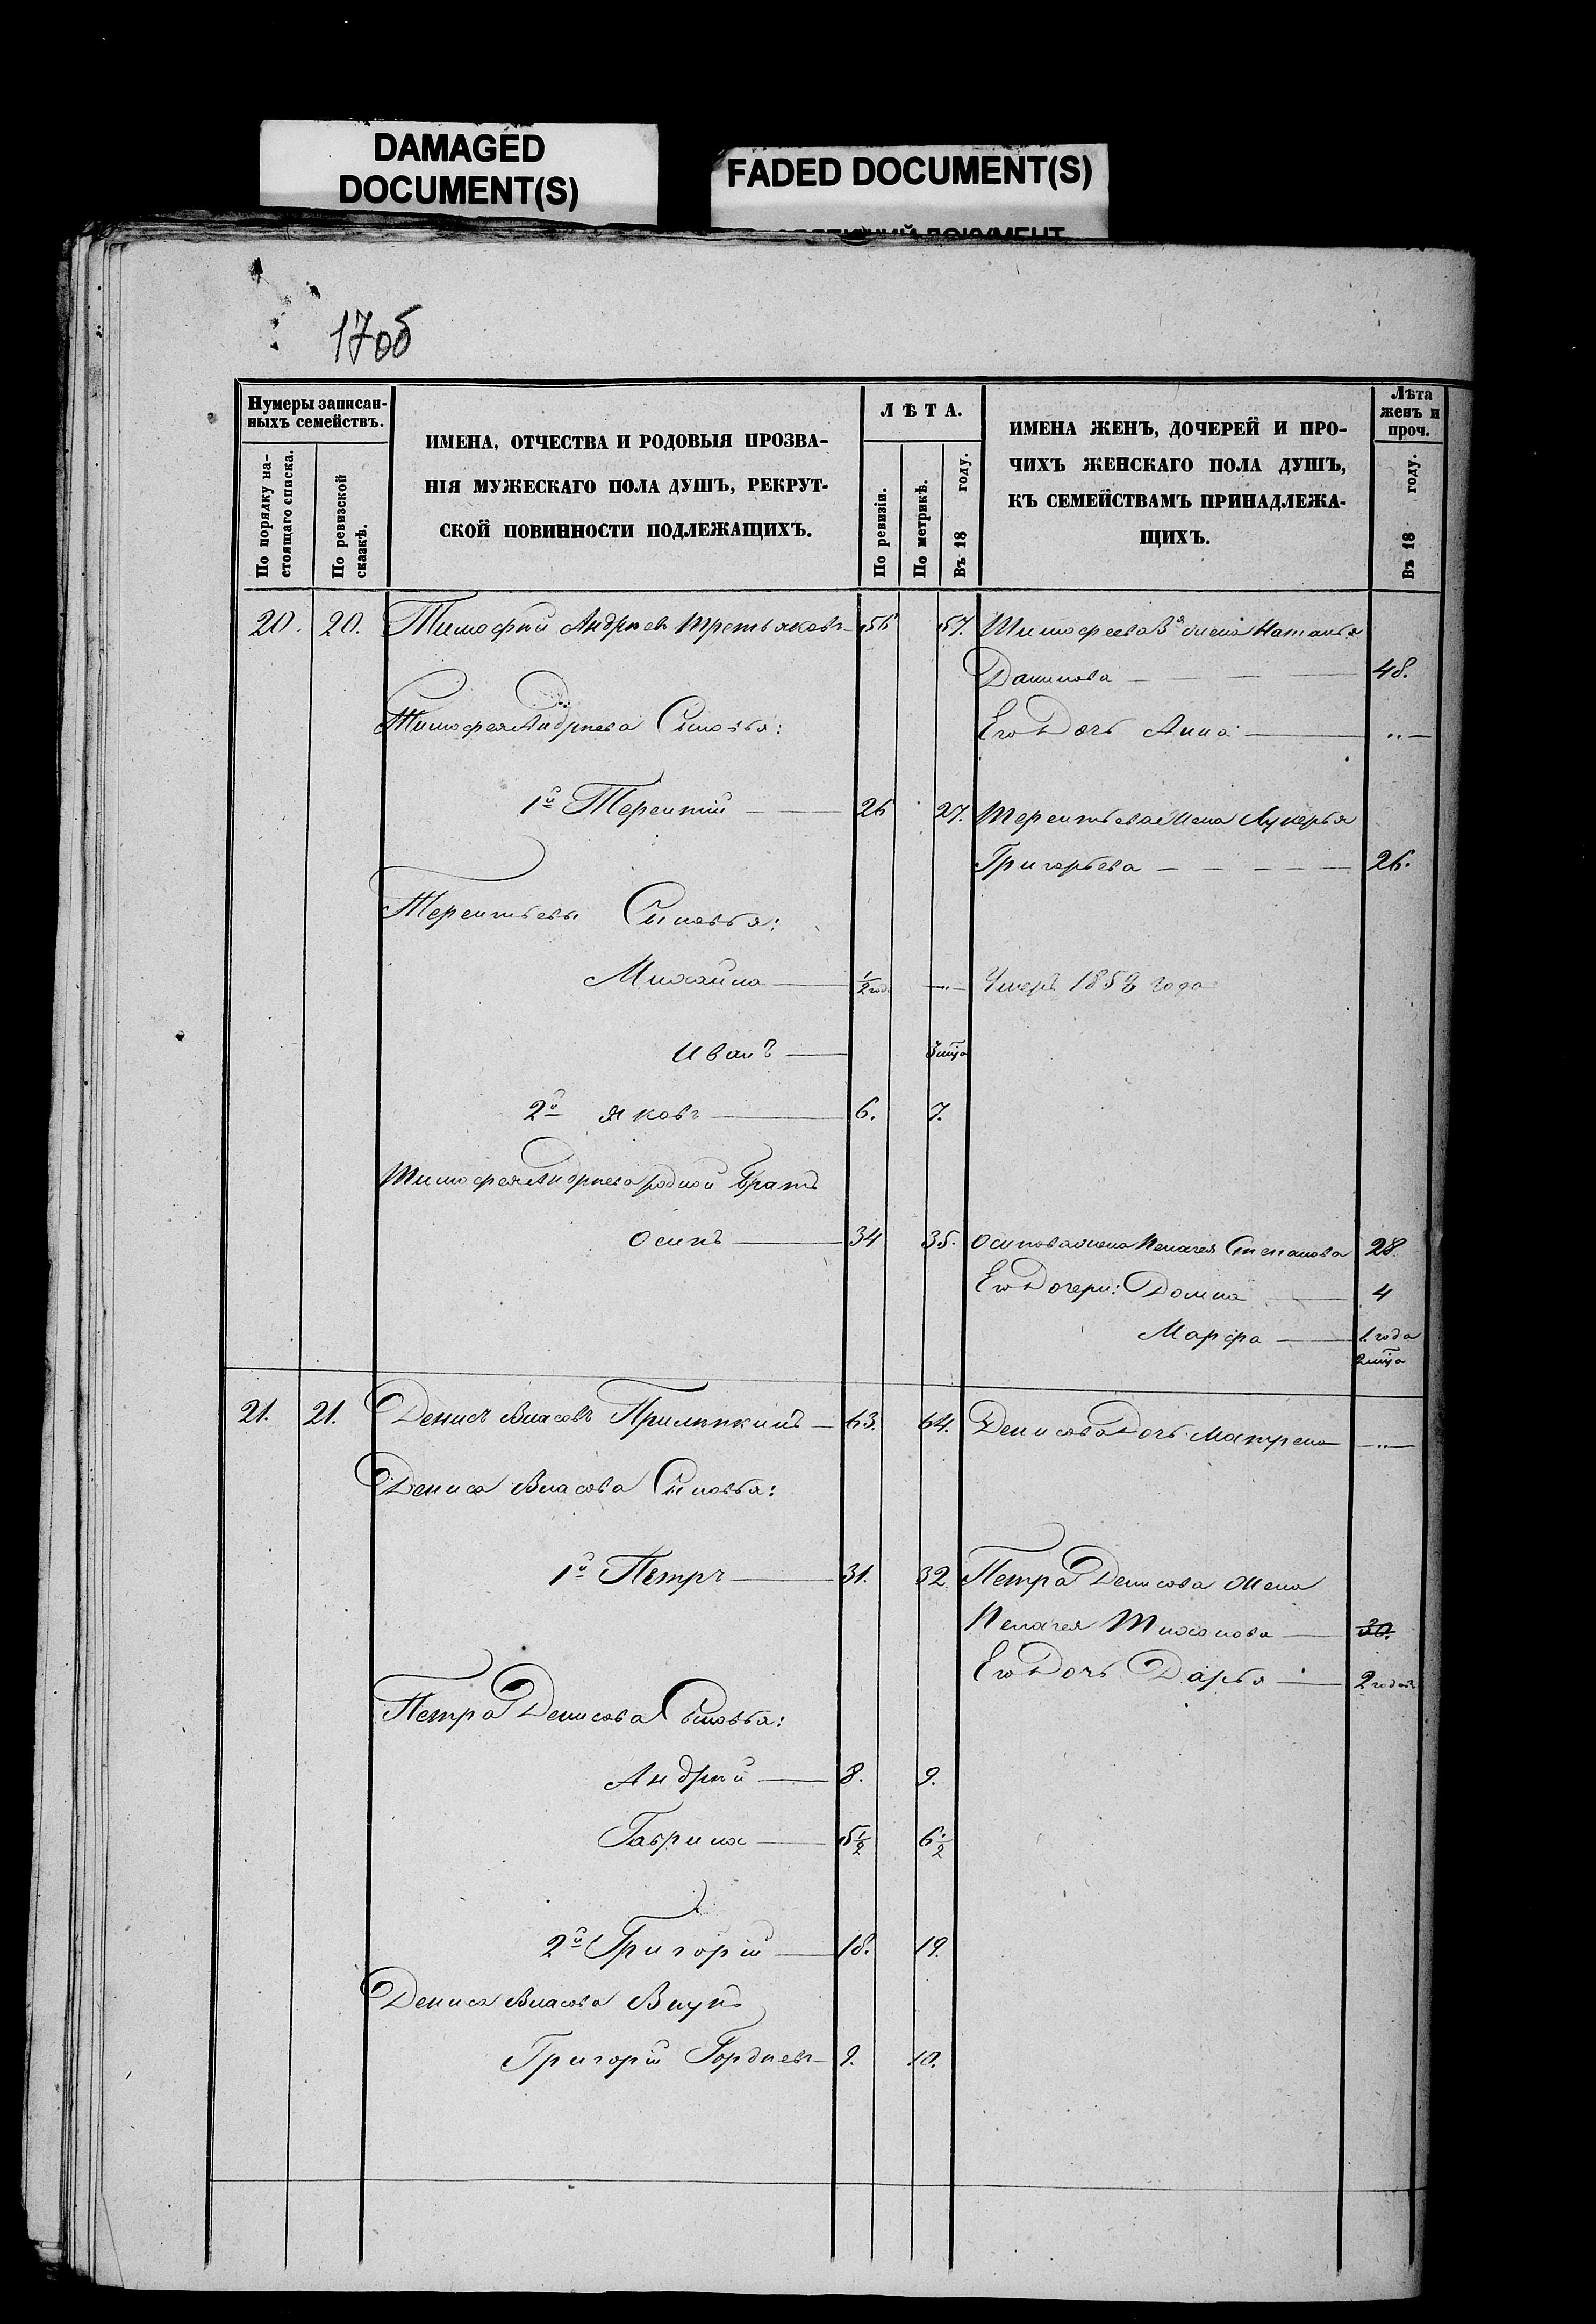 DAMAGED
DOCUMENT(S)
FADED DOCUMENT(S)
17об
Нумеры записан-
ныхъ семействъ.
По порядку на-
стоящаго списка.
По ревизской
сказкѣ.
ИМЕНА, ОТЧЕСТВА И РОДОВЫЯ ПРОЗВА-
НІЯ МУЖЕСКАГО ПОЛА ДУШЪ, РЕКРУТ-
СКОЙ ПОВИННОСТИ ПОДЛЕЖАЩИХЪ.
ЛѢТА.
По ревизіи.
По метрикѣ.
Въ 18 году.
ИМЕНА ЖЕНЪ, ДОЧЕРЕЙ И ПРО-
ЧИХЪ ЖЕНСКАГО ПОЛА ДУШЪ,
КЪ СЕМЕЙСТВАМЪ ПРИНАДЛЕЖА-
ЩИХЪ.
Лѣта
женъ и
проч.
Въ 18 году.
20. 20. Тимофѣй Андрѣевъ Третьяковъ 56 57. Тимофеева 3я жена Наталья
Данилова 48.
Тимофея Андрѣева Сыновья: Его Дочь Анна
1й Терентій 26 27. Терентьева жена Лукерья
Григорьева 26.
Терентьевы Сыновья:
Михайла 1/2 год. Умеръ 1858 года
Иванъ 3 мца
2й Яковъ 6. 7.
Тимофея Андрѣева родной Братъ
Осипъ 34 35. Осипова жена Пелагея Степанова 28.
Его Дочери: Домна 4
Марфа 1. года
2 мца
21. 21. Денисъ Власовъ 63. 64. Денисова Дочь Матрена
Дениса Власова Сыновья:
1й Петръ 31. 32. Петра Денисова жена
Пелагея Тихонова 30.
Его Дочь Дарья 2 годов
Петра Денисова Сыновья:
Андрѣй 8. 9.
Гаврила 5 1/2 6 1/2
2й Григорій 18. 19.
Дениса Власова Внукъ
Григорій Гордѣевъ 9. 10.